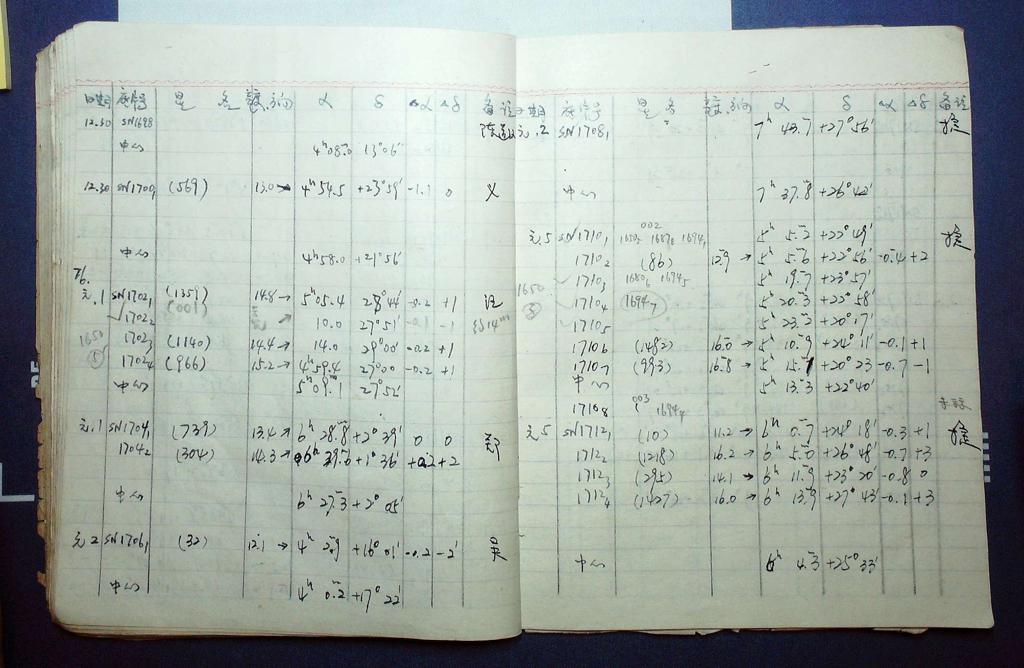 日期 底片号 星 名 α δ Δα Δδ 备注
12.30 SN1698
中心 4ʰ08.0 13°06′
12.30 SN1700₁ (569) 13.0→ 4ʰ54.5 +23°59′ -1.1 0 义
中心 4ʰ58.0 +21°56′
76.
元.1 SN1702₁ (1359) 14.8→ 5ʰ05.4 28°44′ -0.2 +1 汪
1702₂ (001) 10.0 27°51′ -0.1 -1
1650 1702₃ (1140) 14.4→ 14.0 29°00′ -0.2 +1
⑤ 1702₄ (966) 15.2→ 4ʰ59.4 27°00 -0.2 +1
中心 5ʰ09.1 27°52′
元.1 SN1704₁ (739) 13.4→ 6ʰ28.8 +2°39′ 0 0 郑
1704₂ (304) 14.3→ 6ʰ29.6 +1°36′ +0.2 +2
中心 6ʰ27.3 +2°05′
元2 SN1706₁ (32) 12.1→ 4ʰ2.9 +16°01′ -0.2 -2′ 吴
中心 4ʰ0.2 +17°22′
日期 底片号 星 名 α δ Δα Δδ 备注
元.2 SN1708₁ 7ʰ43.7 +27°56′
中心 7ʰ37.8 +26°42′
002
元.5 SN1710₁ 1694₁ 5ʰ5.2 +22°49′
1710₂ (86) 12.9→ 5ʰ5.6 +22°56′ -0.4 +2
1710₃ 1680₆ 1694₅ 5ʰ19.7 +23°57′
1650 1710₄ 1694₇ 5ʰ20.3 +22°58′
⑤ 1710₅ 5ʰ23.2 +20°17′
1710₆ (1482) 16.0→ 5ʰ10.9 +24°11′ -0.1 +1
1710₇ (993) 16.8→ 5ʰ15.1 +20°23 -0.7 -1
中心 5ʰ13.3 +22°40′
003
1710₈ 1694₄
元5 SN1712₁ (10) 11.2→ 6ʰ0.7 +24°18′ -0.3 +1
1712₂ (1218) 16.2→ 6ʰ5.0 +26°48′ -0.7 +3
1712₃ (295) 14.1→ 6ʰ11.9 +23°20′ -0.8 0
1712₄ (1427) 16.0→ 6ʰ13.9 +27°43′ -0.1 +3
中心 6ʰ4.3 +25°33′